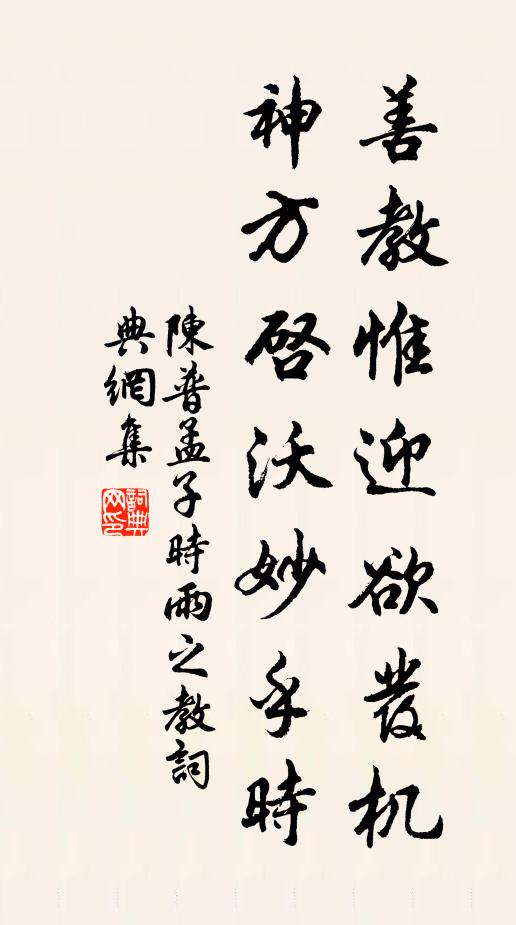 善教惟迎欲發机
神方啓沃妙乎時
陳普孟子時雨之教詞
典網集
詞典
网印